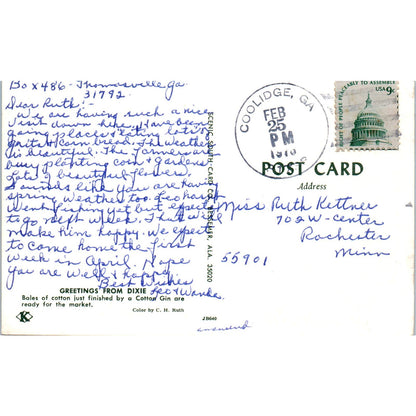 Box 486 - Thomasville Ga.
31792
Dear Ruth:-
We are having such a nice
visit down here. Have been
going places & eating lots of
grits & corn bread. The weather
is beautiful. The farmers are
busy planting corn & gardens
Lots of beautiful flowers.
Sounds like you are having
spring weather too. Leo hasn't
went fishing yet but expects
to go next week. That will
make him happy. We expect
to come home the first
week in April. Hope
you are well & happy
Best Wishes
Leo & Wanda
GREETINGS FROM DIXIE
Bales of cotton just finished by a Cotton Gin are
ready for the market.
Color by C. H. Ruth
K
JB640
SCENIC SOUTH CARD CO., BESSEMER, ALA. 35020
COOLIDGE, GA
FEB
25
PM
1978
RIGHT OF PEOPLE PEACEABLY TO ASSEMBLE
USA 9c
POST CARD
Address
Miss Ruth Kettner
702 W-center
Rochester
Minn
55901